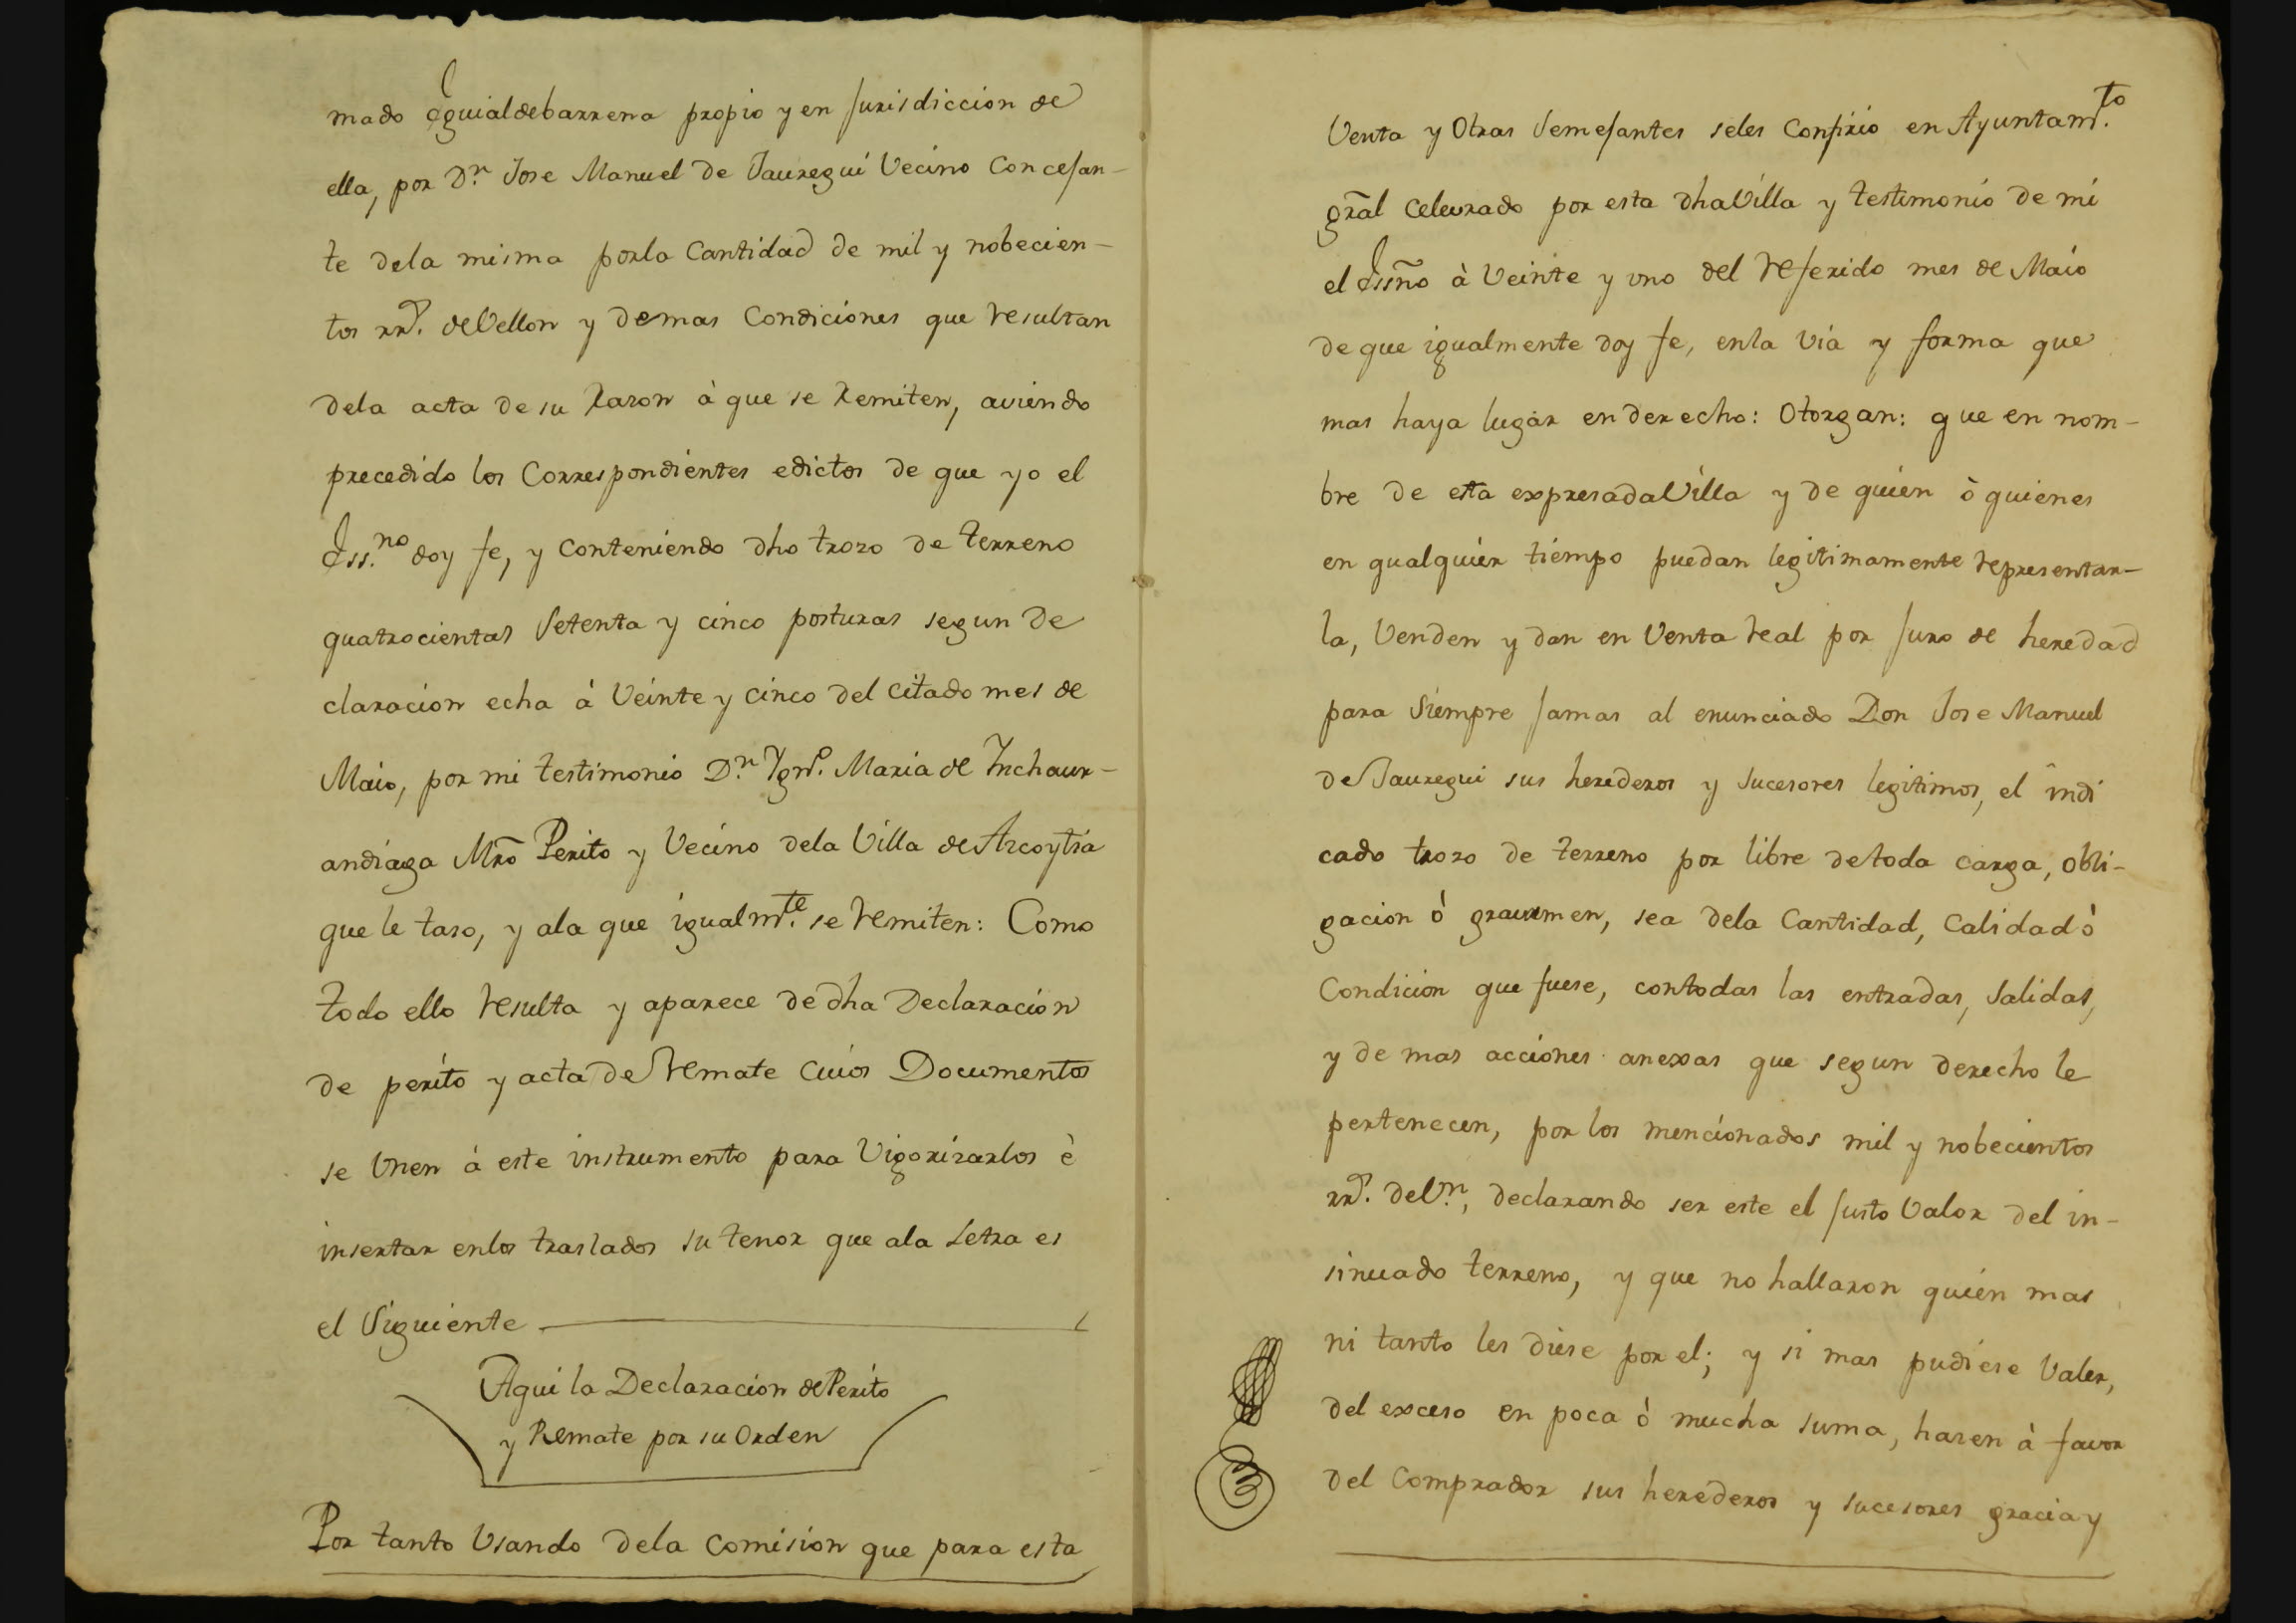 mado Eguialdebarrena propio y en Jurisdiccion de
ella, por D.n Jose Manuel de Jauregui Vecino Concejan-
te dela misma porla Cantidad de mil y nobecien-
tos rr.s deVellon y demas Condiciones que resultan
dela acta de su razon à que se remiten, aviendo
precedido los Correspondientes edictos de que yo el
Ess.no doy fe, y Conteniendo dho trozo de terreno
quatrocientas Setenta y cinco posturas segun de
claracion echa á Veinte y cinco del citado mes de
Maio, por mi testimonio D.n Ygn.o Maria de Ynchaur-
andiaga Mr̃o Perito y Vecino dela Villa de Azcoytia
que le taso, y ala que igualm.te se remiten: Como
todo ello resulta y aparece de dha Declaracion
de perito y acta de remate Cuios Documentos
se Unen á este instrumento para Vigorizarlos è
insertar enlos traslados su tenor que ala Letra es
el Siguiente
Aqui la Declaracion de Perito
y Remate por su Orden
Por tanto Usando dela Comision que para esta
Venta y Otras Semejantes seles Confirio en Ayuntam.to
gr̃al celevrado por esta dhaVilla y testimonio de mi
el Essño à Veinte y uno del referido mes de Maio
de que igualmente doy fe, enla via y forma que
mas haya lugar en derecho: Otorgan: que en nom-
bre de esta expresadaVilla y de quien ò quienes
en qualquier tiempo puedan legitimamente representar-
la, Venden y dan en Venta real por Juro de heredad
para Siempre Jamas al enunciado Don Jose Manuel
de Jauregui sus herederos y Sucesores legitimos, el indi
cado trozo de terreno por libre detoda carga, obli-
gacion ó gravamen, sea dela Cantidad, Calidad ò
Condicion que fuese, contodas las entradas, Salidas,
y de mas acciones anexas que segun derecho le
pertenecen, por los mencionados mil y nobecientos
rr.s deV.n, declarando ser este el Justo Valor del in-
sinuado terreno, y que no hallaron quien mas
ni tanto les diese por el; y si mas pudiese Valer,
del exceso en poca ò mucha suma, hacen à favor
del Comprador sus herederos y sucesores gracia y